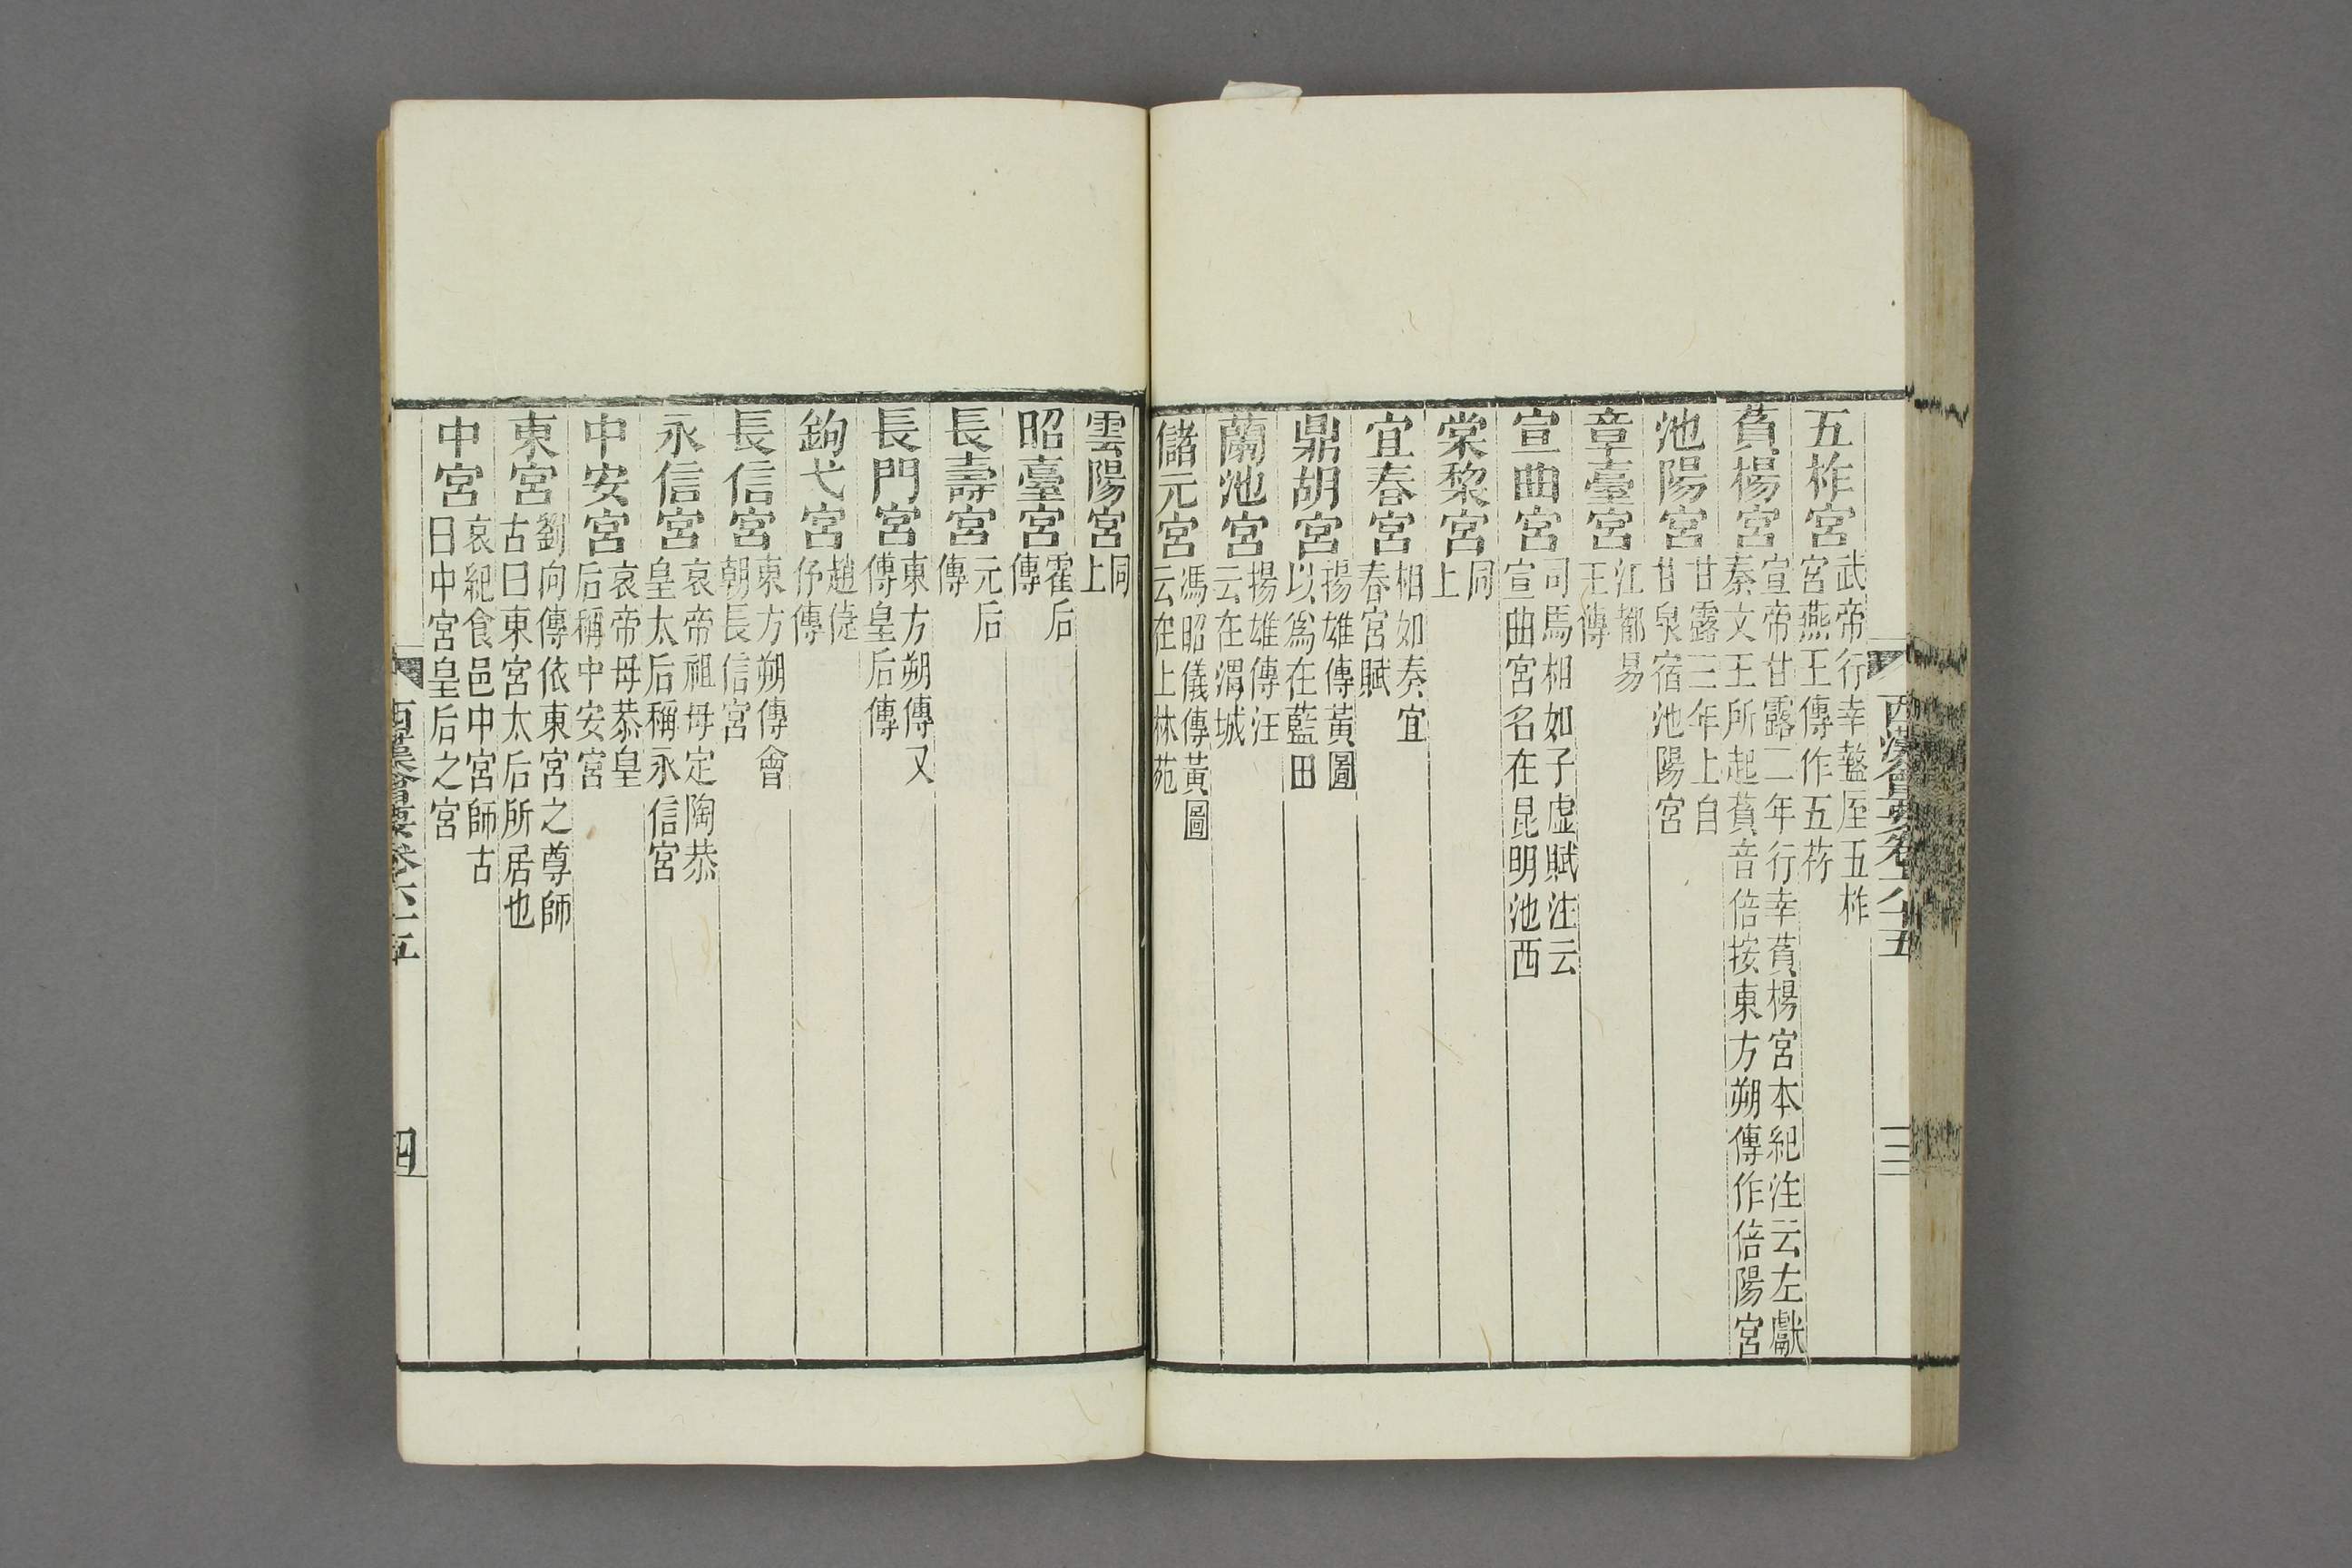 西漢會要卷六十五
三
五柞宮武帝行幸盩厔五柞宮燕王傳作五莋
萯楊宮宣帝甘露二年行幸萯楊宮本紀注云左獻秦文王所起萯音倍按東方朔傳作倍陽宮
池陽宮甘露三年上自甘泉宿池陽宮
章臺宮江都易王傳
宣曲宮司馬相如子虛賦注云宣曲宮名在昆明池西
棠棃宮同上
宜春宮相如奏宜春宮賦
鼎胡宮揚雄傳黃圖以爲在藍田
蘭池宮揚雄傳汪云在渭城
儲元宮馮昭儀傳黃圖云在上林苑
雲陽宮同上
昭臺宮霍后傳
長壽宮元后傳
長門宮東方朔傳又傳皇后傳
鉤弋宮趙倢伃傳
長信宮東方朔傳會朝長信宮
永信宮哀帝祖母定陶恭皇太后稱永信宮
中安宮哀帝母恭皇后稱中安宮
東宮劉向傳依東宮之尊師古曰東宮太后所居也
中宮哀紀食邑中宮師古曰中宮皇后之宮
西漢會要卷六十五
四